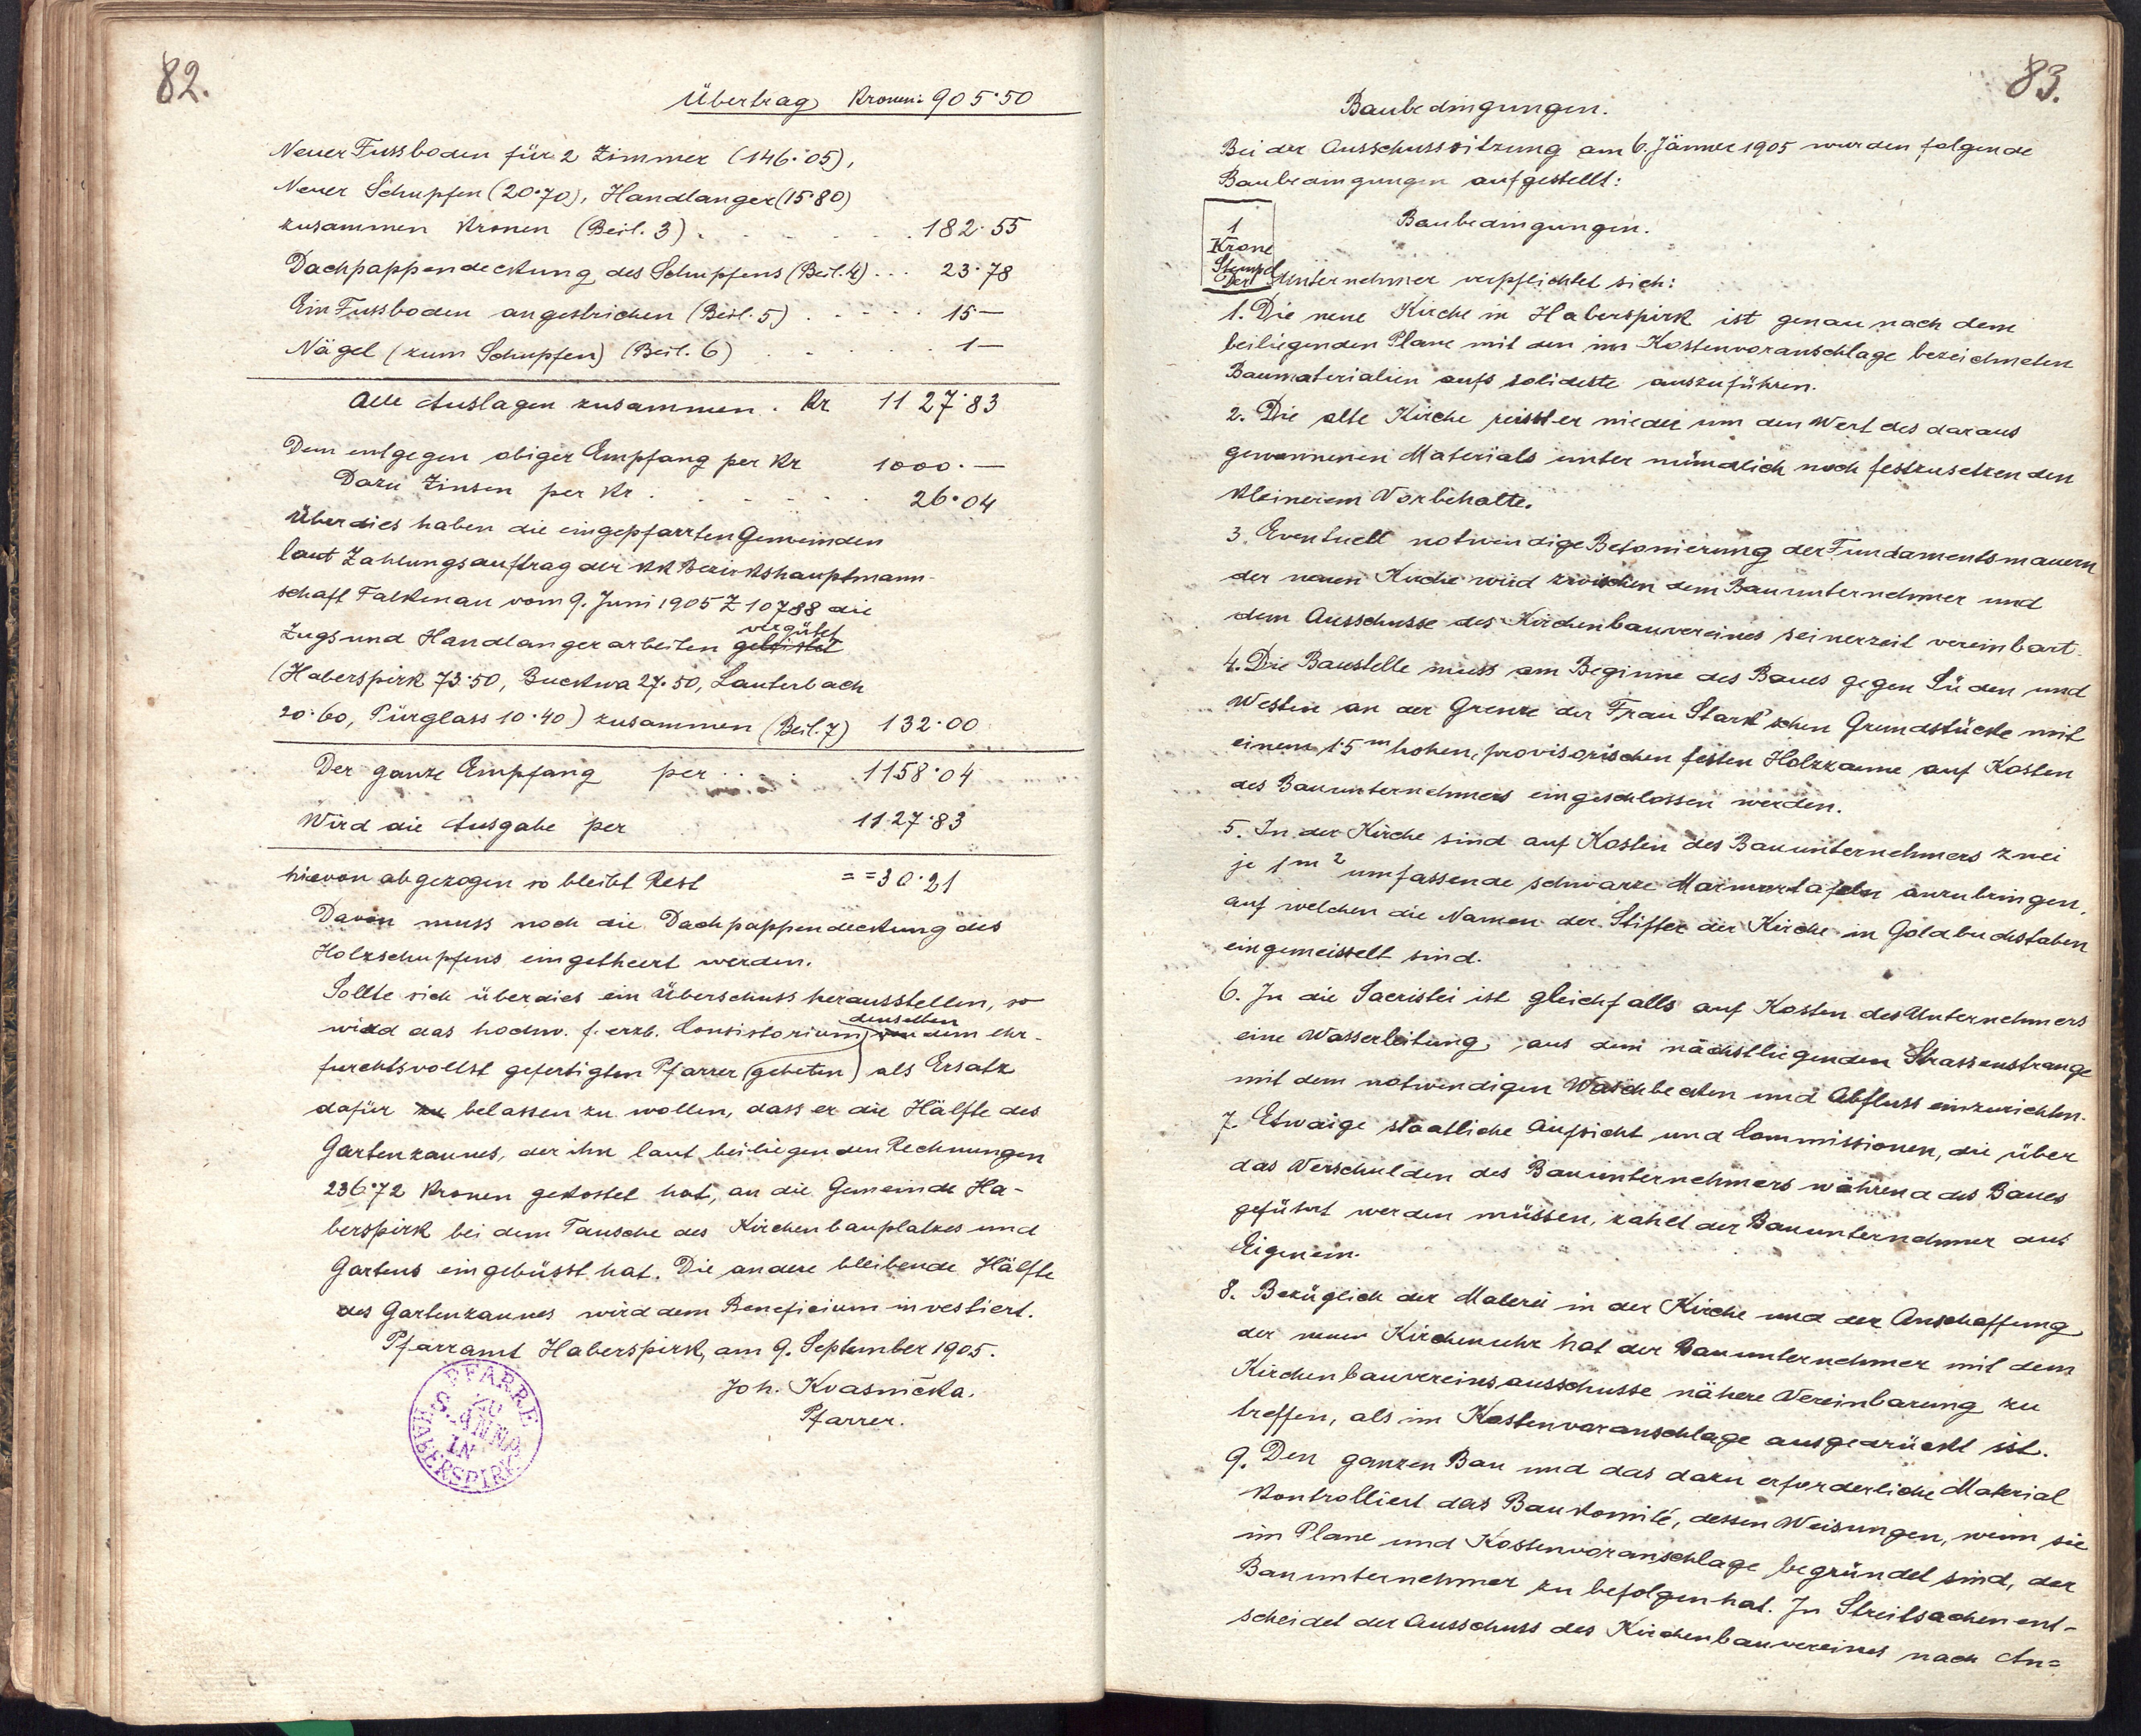 82.
Übertrag Kronen: 905·50
Neuer Fussboden für 2 Zimmer (146·05),
Neuer Schupfen (20·70), Handlanger (15·80)
zusammen Kronen (Beil. 3) . . . . 182·55
Dachpappendeckung des Schupfens (Beil. 4) . . . 23·78
Ein Fussboden angestrichen (Beil. 5) . . . . . 15—
Nägel (zum Schupfen) (Beil. 6) . . . . . 1—
Alle Auslagen zusammen . Kr 1127·83
Dem entgegen obiger Empfang per Kr 1000.—
Dazu Zinsen per Kr . . . . . . 26·04
Überdies haben die eingepfarrten Gemeinden
laut Zahlungsauftrag der KK Bezirkshauptmann-
schaft Falkenau vom 9. Juni 1905 Z 10788 die
vergütet
Zugs und Handlangerarbeiten geleistet
(Haberspirk 73·50, Buckwa 27·50, Lauterbach
20·60, Pürglass 10·40) zusammen (Beil. 7) 132·00
Der ganze Empfang per . . . 1158·04
Wird die Ausgabe per 1127·83
hievon abgezogen so bleibt Rest = = 30·21
Davon muss noch die Dachpappendeckung des
Holzschupfens eingetheert werden.
Sollte sich überdies ein Überschuss herausstellen, so
denselben
wird das hochw. f. erzb. Consistorium von dem ehr-
furchtsvollst gefertigten Pfarrer (gebeten) als Ersatz
dafür zu belassen zu wollen, dass er die Hälfte des
Gartenzaunes, der ihn laut beiliegenden Rechnungen
236·72 Kronen gekostet hat, an die Gemeinde Ha-
berspirk bei dem Tausche des Kirchenbauplatzes und
Gartens eingebüsst hat. Die andere bleibende Hälfte
des Gartenzaunes wird dem Beneficium investiert.
Pfarramt Haberspirk, am 9. September 1905.
Joh. Kvasnička.
Pfarrer.
PFARRE
ZU
S. ANNA
IN
HABERSPIRK
83.
Baubedingungen.
Bei der Ausschusssitzung am 6. Jänner 1905 wurden folgende
Baubedingungen aufgestellt:
1
Krone
Stempel
Baubedingungen.
Der Unternehmer verpflichtet sich:
1. Die neue Kirche in Haberspirk ist genau nach dem
beiliegenden Plane mit den im Kostenvoranschlage bezeichneten
Baumaterialien aufs solideste auszuführen.
2. Die alte Kirche reisst er nieder um den Wert des daraus
gewonnenen Materials unter mündlich noch festzusetzenden
kleinerem Vorbehalte.
3. Eventuell notwendige Betonierung der Fundamentsmauern
der neuen Kirche wird zwischen dem Bauunternehmer und
dem Ausschusse des Kirchenbauvereines seinerzeit vereinbart.
4. Die Baustelle muss am Beginne des Baues gegen Süden und
Westen an der Grenze der Frau Stark'schen Grundstücke mit
einem 1·5 m hohen, provisorischen festen Holzzaune auf Kosten
des Bauunternehmers eingeschlossen werden.
5. In der Kirche sind auf Kosten des Bauunternehmers zwei
je 1 m² umfassende schwarze Marmortafeln anzubringen,
auf welchen die Namen der Stifter der Kirche in Goldbuchstaben
eingemeisselt sind.
6. In die Sacristei ist gleichfalls auf Kosten des Unternehmers
eine Wasserleitung aus dem nächstliegenden Strassenstrange
mit dem notwendigen Waschbecken und Abfluss einzurichten.
7. Etwaige staatliche Aufsicht und Commissionen, die über
das Verschulden des Bauunternehmers während des Baues
geführt werden müssen, zahlt der Bauunternehmer aus
Eigenem.
8. Bezüglich der Malerei in der Kirche und der Anschaffung
der neuen Kirchenuhr hat der Bauunternehmer mit dem
Kirchenbauvereinsausschusse nähere Vereinbarung zu
treffen, als im Kostenvoranschlage ausgedrückt ist.
9. Den ganzen Bau und das dazu erforderliche Material
kontrolliert das Baukomité, dessen Weisungen, wenn sie
im Plane und Kostenvoranschlage begründet sind, der
Bauunternehmer zu befolgen hat. In Streitsachen ent-
scheidet der Ausschuss des Kirchenbauvereines nach An=